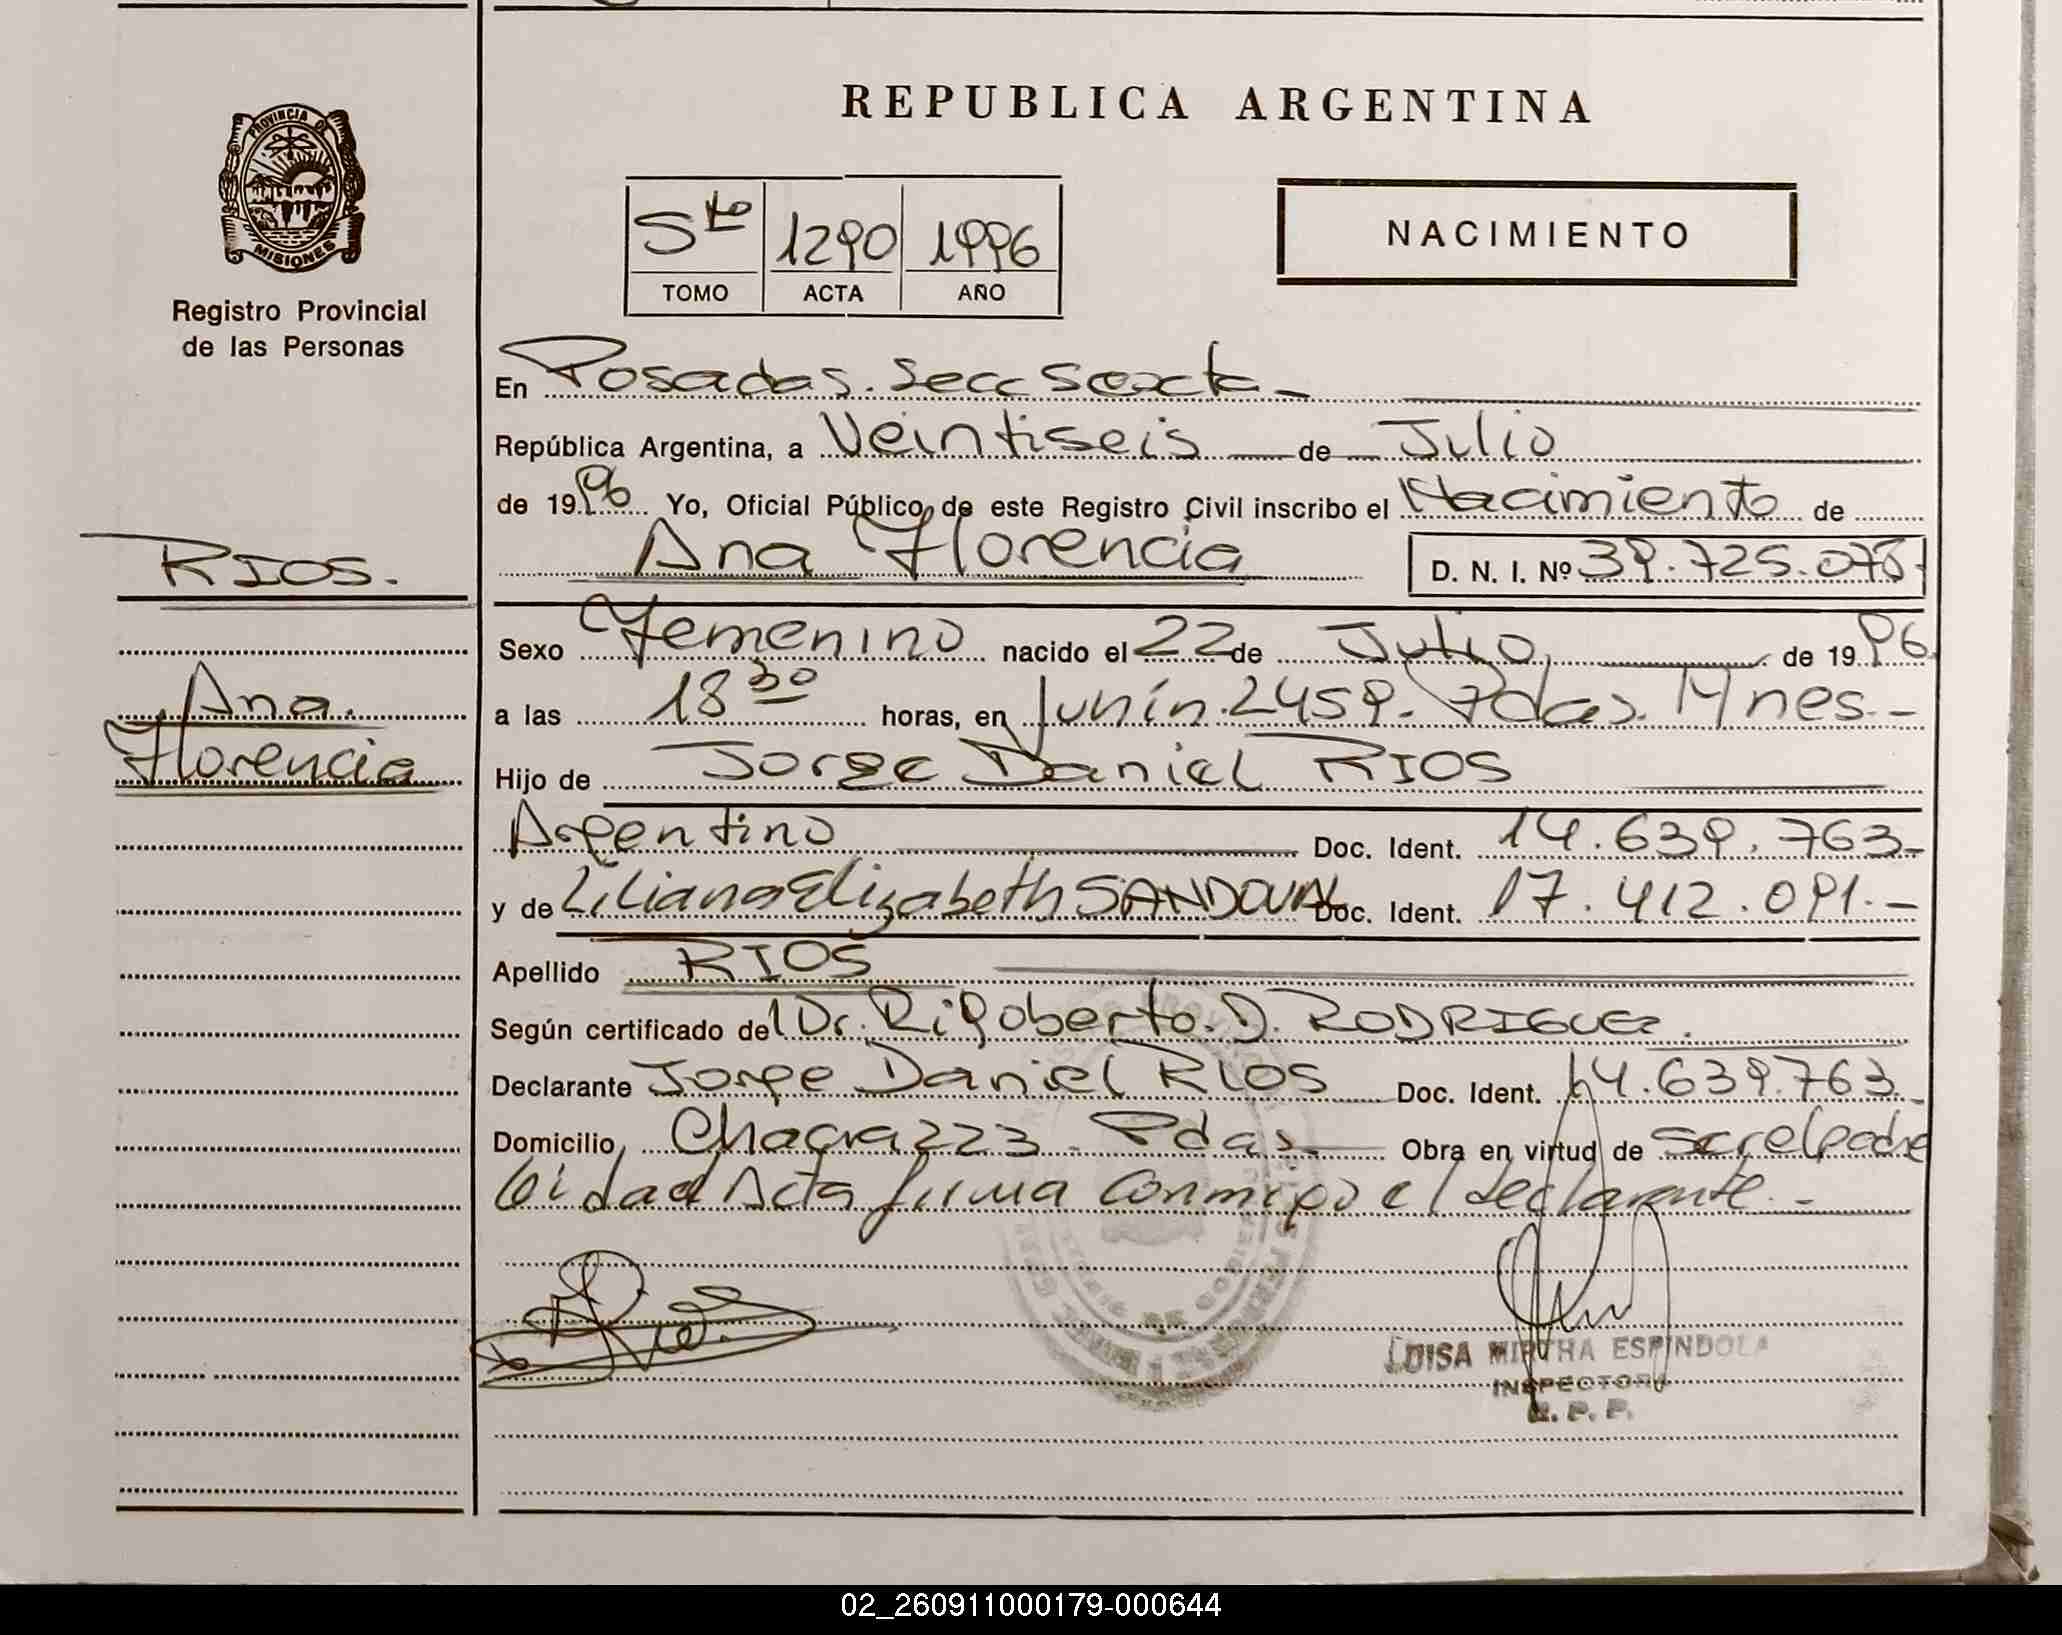 REPUBLICA ARGENTINA
PROVINCIA DE
MISIONES
Registro Provincial
de las Personas
5to 1290 1996
TOMO ACTA AÑO
NACIMIENTO
En Posadas. Secc Sexta
República Argentina, a Veintiseis de Julio
de 1996 Yo, Oficial Público de este Registro Civil inscribo el Nacimiento de
Ana Florencia D. N. I. Nº 39.725.078
RIOS.
Ana
Florencia
Sexo Femenino nacido el 22 de Julio de 1996
a las 18 30 horas, en Junín 2459. Pdas. Mnes.-
Hijo de Jorge Daniel RIOS
Argentino Doc. Ident. 14.639.763-
y de Liliana Elizabeth SANDOVAL Doc. Ident. 17.412.091.-
Apellido RIOS
Según certificado del Dr. Rigoberto. D. RODRIGUEZ.
Declarante Jorge Daniel RIOS Doc. Ident. 14.639.763
Domicilio Chacra 223 - Pdas Obra en virtud de
Acta firma conmigo el declarante.-
LUISA MIRTHA ESPINDOLA
INSPECTORA
R. P. P.
02_260911000179-000644